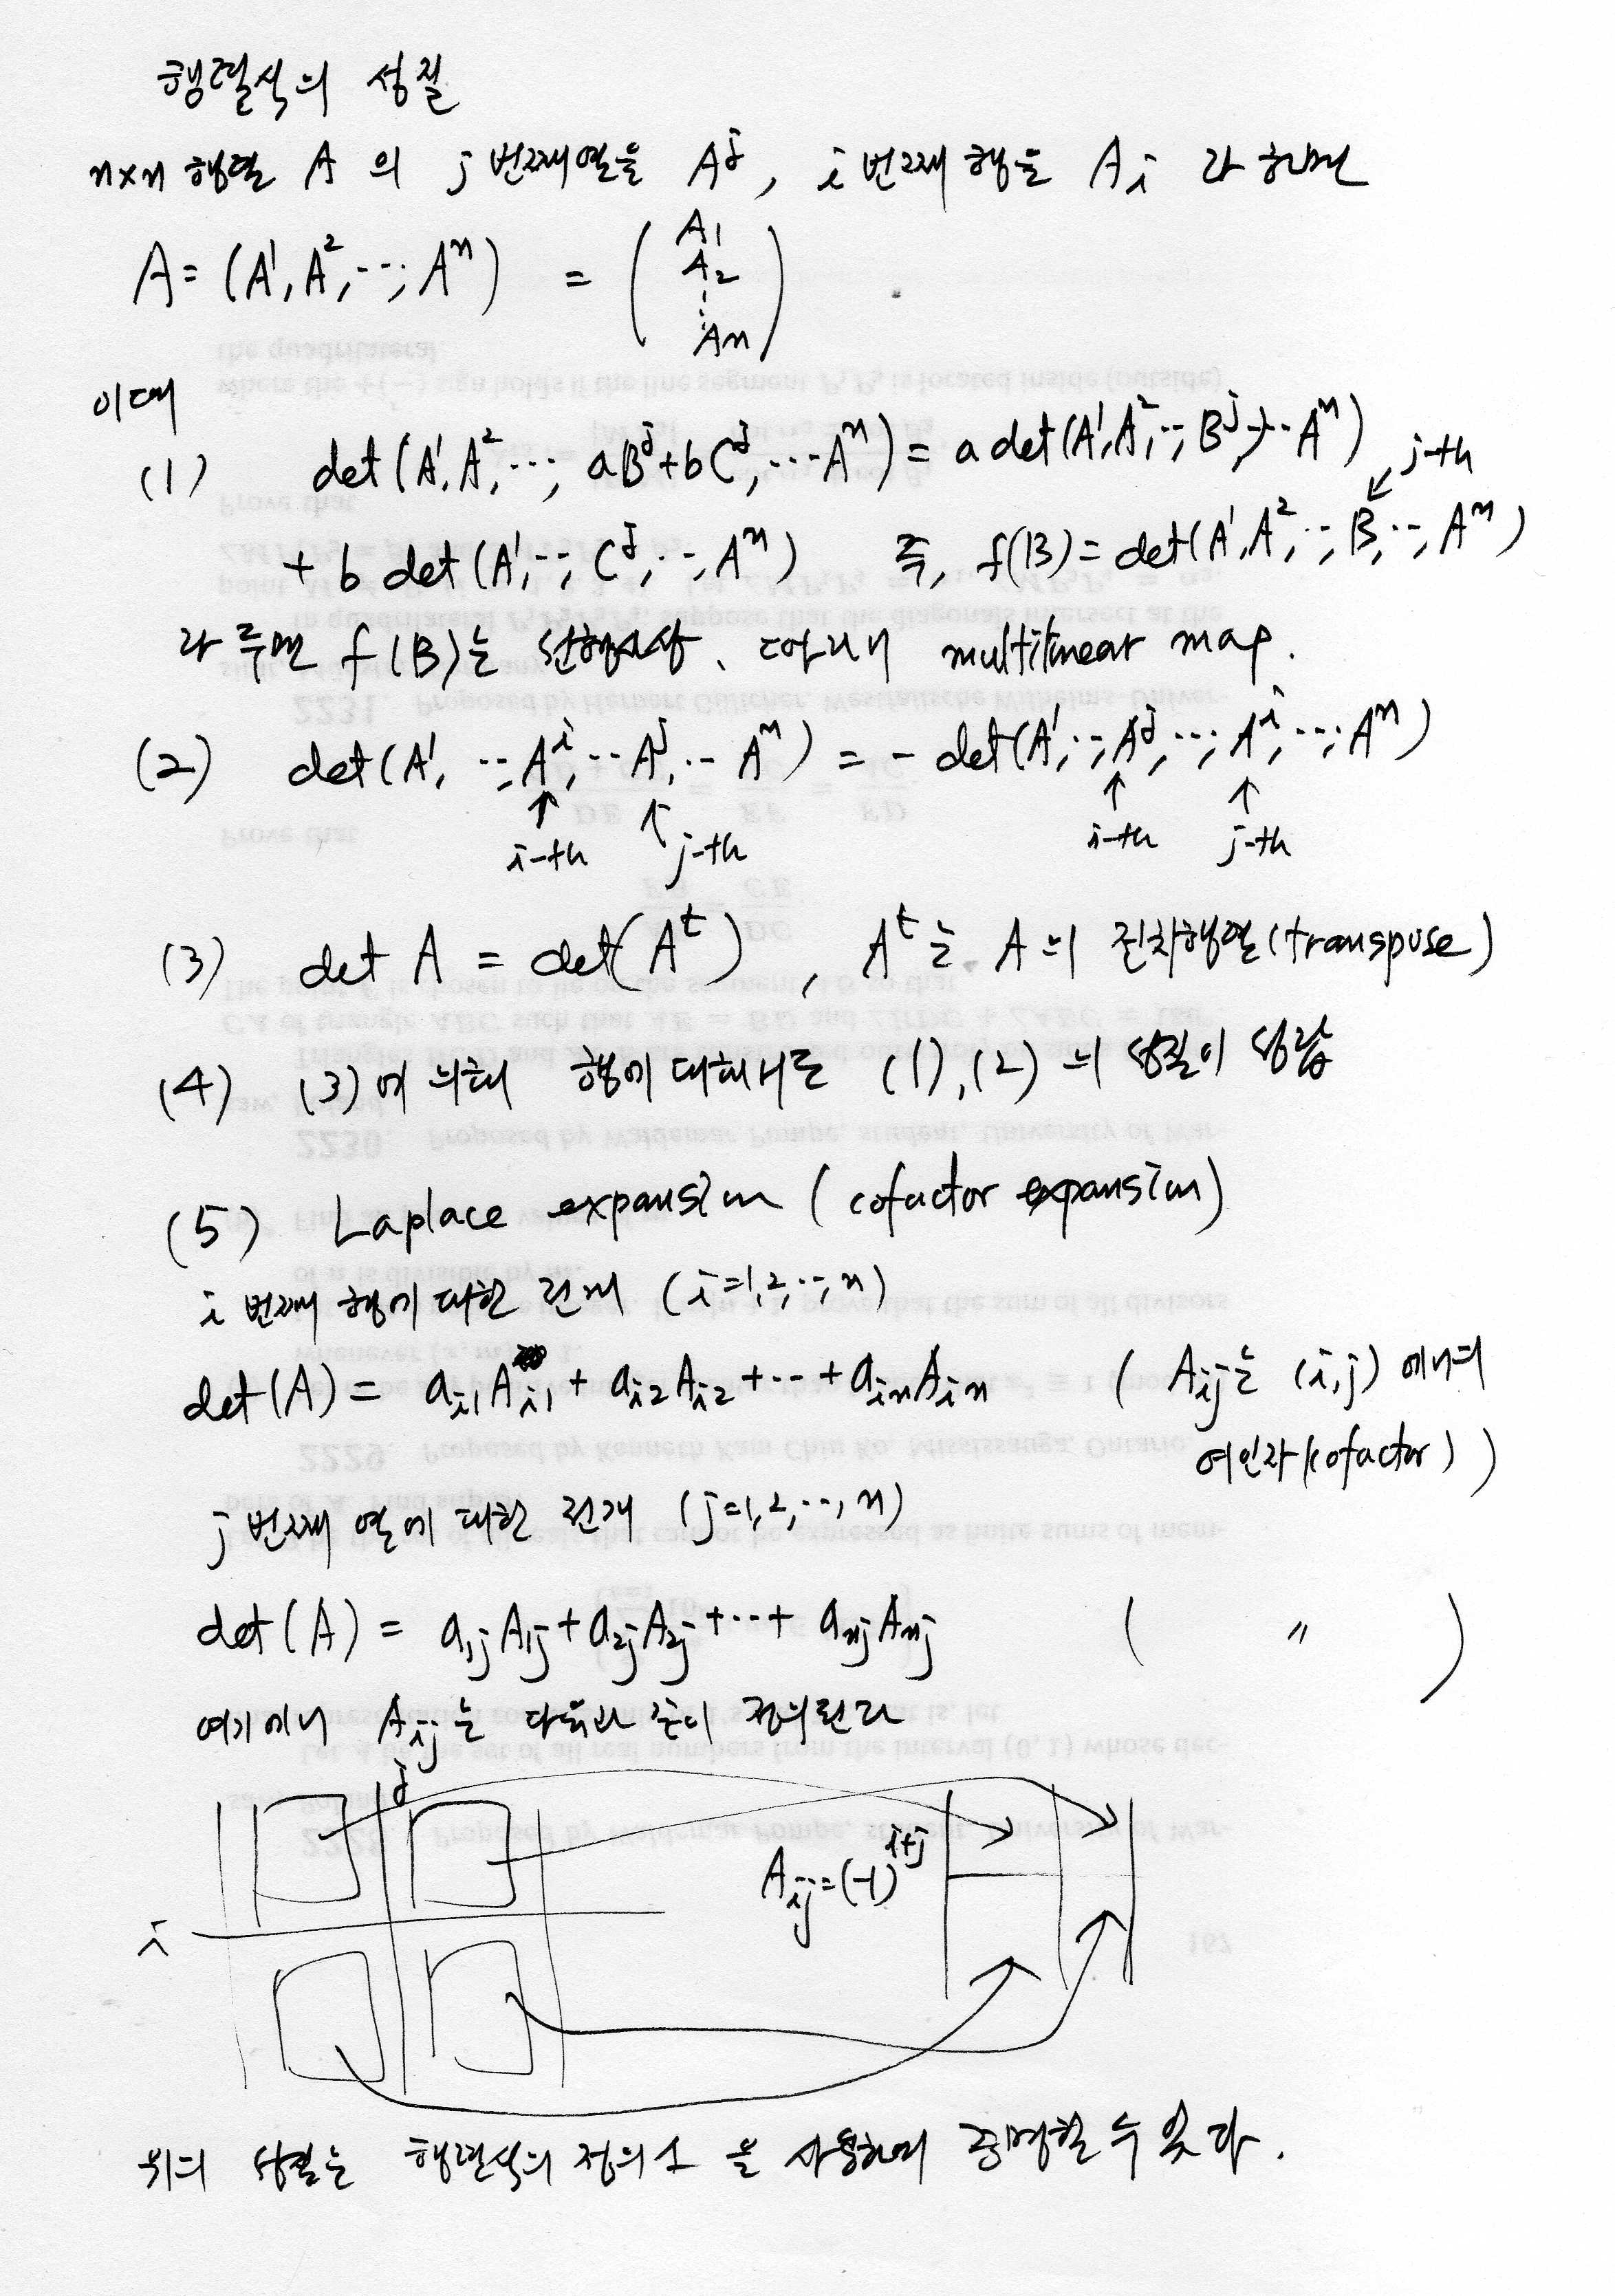 행렬식의 성질
n×n 행렬 A 의 j 번째열을 A^j, i 번째 행을 A_i 라 하면
A = (A^1, A^2, ..., A^n) = ( A_1 A_2 ⋮ A_n )
이때
(1) det(A^1, A^2, ..., aB^j + bC^j, ... A^n) = a det(A^1, A^2, ..., B^j, ... A^n)
+ b det(A^1, ..., C^j, ..., A^n) 즉, f(B) = det(A^1, A^2, ..., B, ..., A^n) ↙ j-th
라 두면 f(B)는 선형사상.  multilinear map.
(2) det(A^1, ..., A^i, ... A^j, ... A^n) = - det(A^1, ..., A^j, ..., A^i, ..., A^n)
↑ i-th ↑ j-th ↑ i-th ↑ j-th
(3) det A = det(A^t), A^t는 A의 전치행렬(transpose)
(4) (3)에 의해 행에 대해서도 (1), (2)의 성질이 성립
(5) Laplace expansion (cofactor expansion)
i 번째 행에 대한 전개 (i=1,2,...,n)
det(A) = a_i1 A_i1 + a_i2 A_i2 + ... + a_in A_in ( A_ij는 (i,j) 에서의
여인자(cofactor) )
j 번째 열에 대한 전개 (j=1,2,...,n)
det(A) = a_1j A_1j + a_2j A_2j + ... + a_nj A_nj ( 〃 )
여기에서 A_ij는 다음과 같이 정의된다
j
A_ij = (-1)^{i+j}
i
위의 성질는 행렬식의 정의 1 을 사용하여 증명할 수 있다.